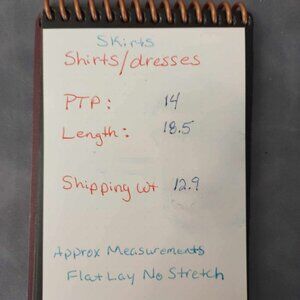 Skirts
Shirts/dresses
PTP: 14
Length: 18.5
Shipping wt 12.9
Approx Measurements
Flat Lay No Stretch